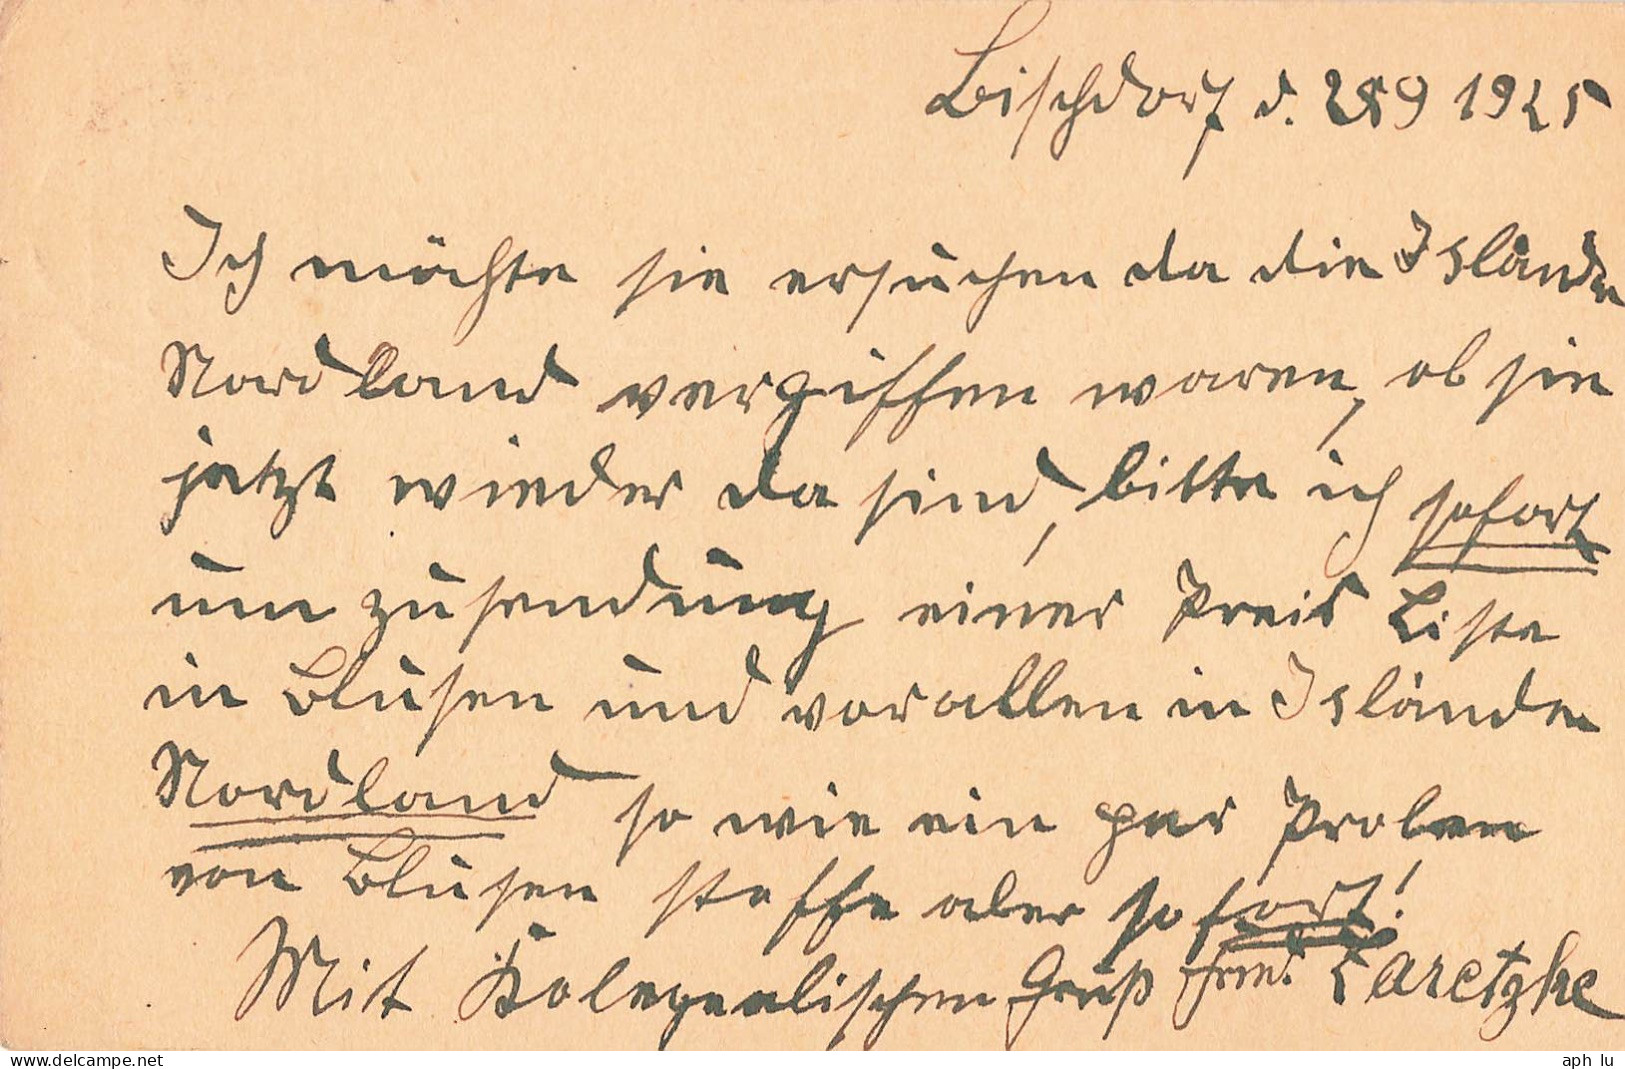 Bischdorf d. 28 9 1925
Ich möchte sie ersuchen da die Islände
Nordland vergiffen waren, ob sie
jetzt wieder da sind, bitte ich sofort
um zusendung einer Preis Liste
in Blusen und vor allen in Islånden
Nordland so wie ein par Proben
von Blusen stoffe aber sofort!
Mit Kolegealischen Gruß Laretzke
aph_lu
www.delcampe.net